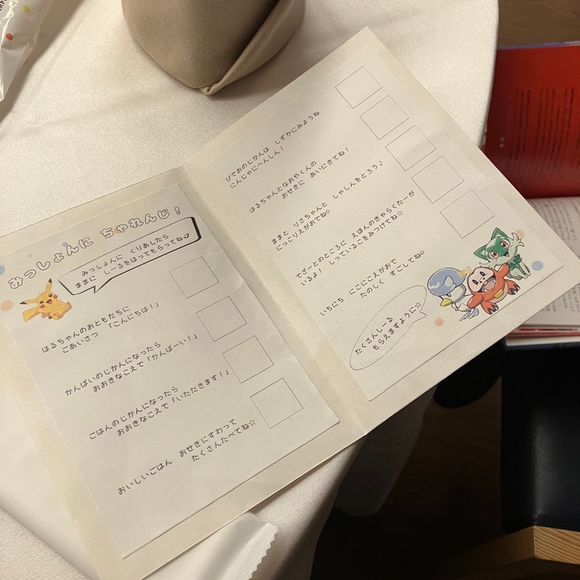 みっしょんに ちゃれんじ！
みっしょんに くりあしたら
ままに しーるをはってもらってね♡
はるちゃんのおともだちに
ごあいさつ 「こんにちは！」
かんぱいのじかんになったら
おおきなこえで「かんぱーい！」
ごはんのじかんになったら
おおきなこえで「いただきます！」
おいしいごはん おせきにすわって
たくさんたべてね☆
びでおのじかんは しずかにみようね
にんじゃにへんしん！
はるちゃんとなおやくんの
おせきに あいにきてね！
ままと りさちゃんと しゃしんをとろう♪
にっこりえがおでね◎
でざーとのところに えほんのきゃらくたーが
いるよ！ しっているこをみつけてね☆
いちにち にこにこえがおで
たのしく すごしてね◎
たくさんしーる
もらえますように☆